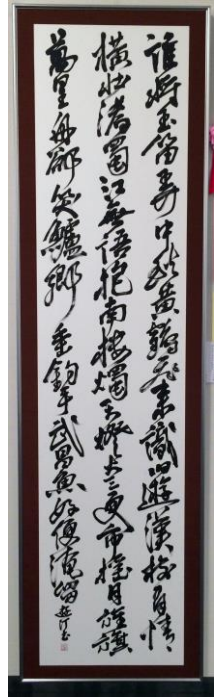 誰將玉笛弄中秋黄鶴飛来識旧遊漢樹有情
横北渚蜀江無語抱南樓燭天燈火三更市揺月旌旗
萬里舟卻笑鱸郷垂釣手武昌魚好便淹留